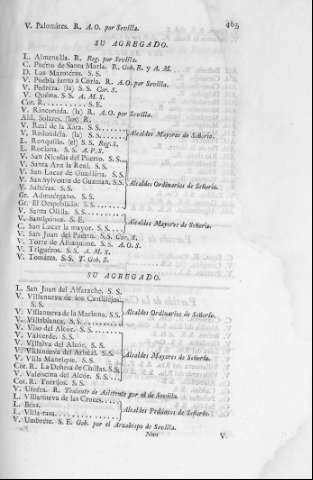 465
V. Palomáres. R. A.O. por Sevilla.
SU AGREGADO.
L. Almensilla. R. Reg. por Sevilla.
C. Puerto de Santa María. R. Gob. E. y A. M.
D. Las Marotéras. S. S.
V. Puebla junto á Cória. R. A.O. por Sevilla.
V. Pedréra. (la) S. S. Cor. S.
V. Quéma. S. S. A. M. S.
Cor. R. S. E.
V. Rinconáda. (la) R. A.O. por Sevilla.
Ald. Soláres. (los) R.
V. Real de la Xara. S. S.
V. Redondéla. (la) S. S. Alcaldes Mayores de Señorío.
L. Ronquillo. (el) S. S. Reg. S.
L. Rociana. S. S. A.P.S.
V. San Nicolas del Puerto. S. S.
V. Santa Ana la Real. S. S.
V. San Lucar de Guadiana. S. S.
V. San Sylvestre de Guzman. S. S. Alcaldes Ordinarios de Señorío.
V. Saltéras. S. S.
Gr. Admuérgano. S. S.
Gr. El Despoblado. S. S.
V. Santa Olalla. S. S.
V. Santiponce. S. E. Alcaldes Mayores de Señorío.
C. San Lucar la mayor. S. S.
V. San Juan del Puerto. S. S. Cor. S.
V. Torre de Alháquime. S. S. A. O. S.
V. Triguéros. S. S. A. M. S.
V. Tomáres. S. S. T. Gob. S.
SU AGREGADO.
L. San Juan del Alfarache. S. S.
V. Villanueva de los Castillejos.
S. S.
V. Villanueva de la Mariena. S. S. Alcaldes Ordinarios de Señorío.
V. Villablanca. S. S.
V. Viso del Alcor. S. S.
V. Valverde. S. S.
V. Villalva del Alcór. S. S.
V. Villanueva del Ariscal. S. S. Alcaldes Mayores de Señorío.
V. Villa Manrique. S. S.
Cor. R. La Dehesa de Chillas. S. S.
V. Valencina del Alcór. S. S.
Cor. R. Torrijos. S. S.
V. Utréra. R. Teniente de Asistente por el de Sevilla.
L. Villanueva de las Cruces.
L. Béas. Alcaldes Pedáneos de Señorío.
L. Villa-rasa.
V. Umbrete. S. E. Gob. por el Arzobispo de Sevilla.
V.